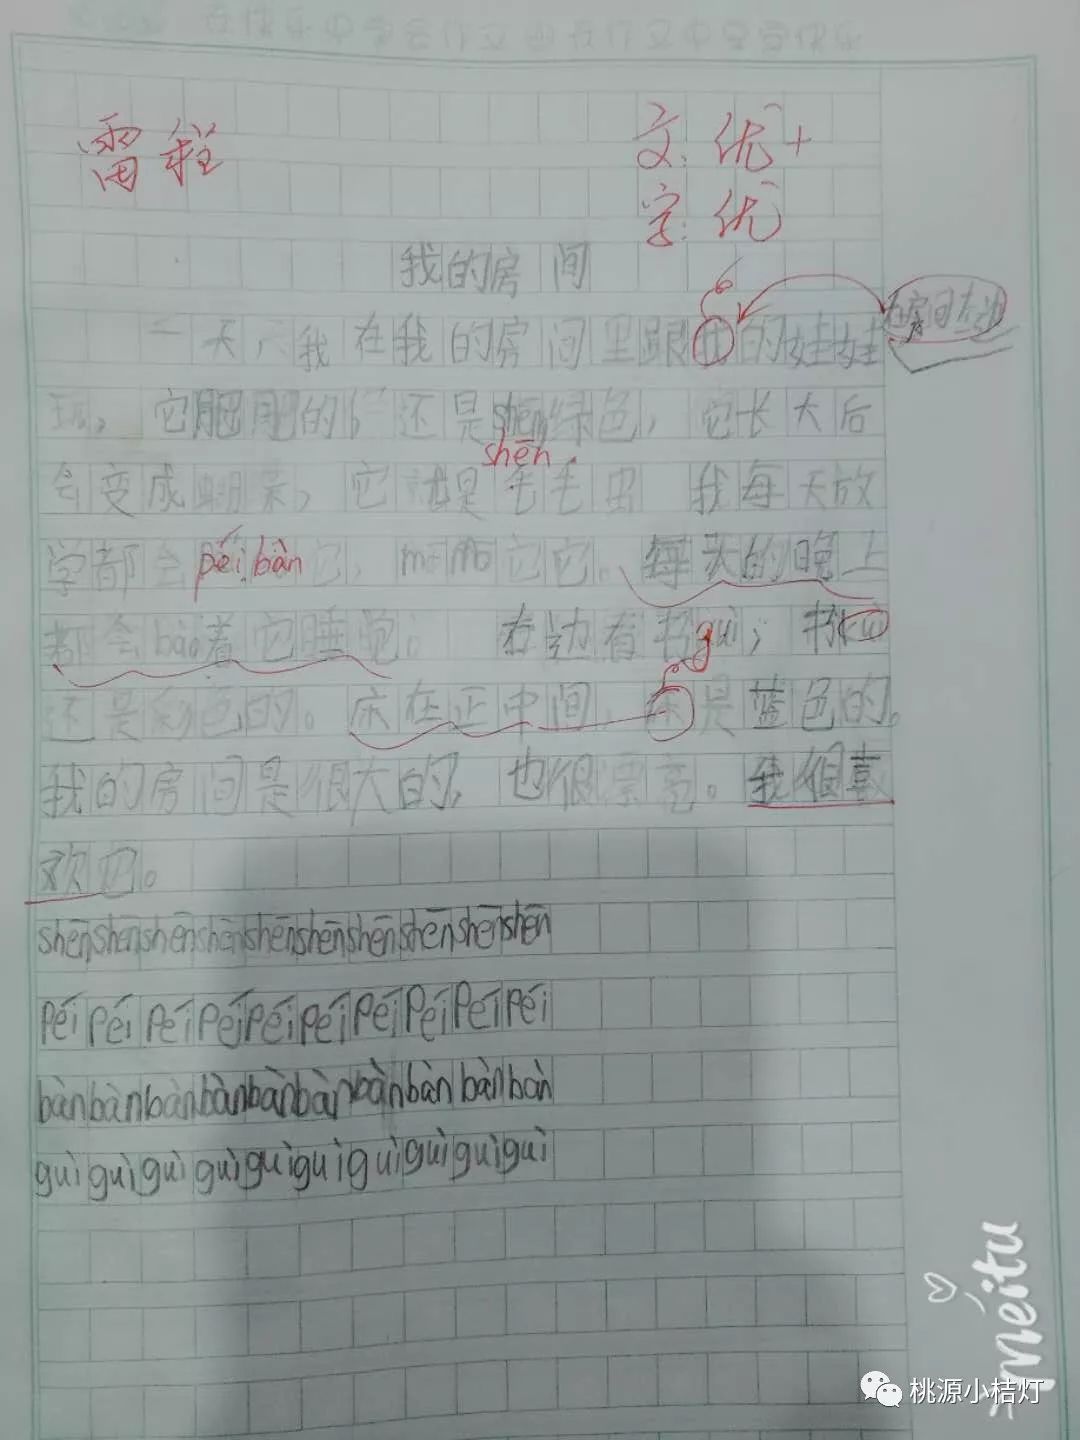 雷程
文:优+
字:优
我的房间
一天我在我的房间里跟我的娃娃
在房间左边
玩。它肥肥的,还是shēn绿色,它长大后
shēn
会变成蝴蝶,它就是毛毛虫 我每天放
学都会péi bàn它,mō mō它。每天的晚上
都会bào着它睡觉。右边有书guì;书
还是彩色的。床在正中间,床是蓝色的。
我的房间是很大的,也很漂亮。我很喜
欢它。
shēn shēn shēn shēn shēn shēn shēn shēn shēn shēn
péi péi péi péi péi péi péi péi péi péi
bàn bàn bàn bàn bàn bàn bàn bàn bàn bàn
guì guì guì guì guì guì guì guì guì guì
meitu
桃源小桔灯